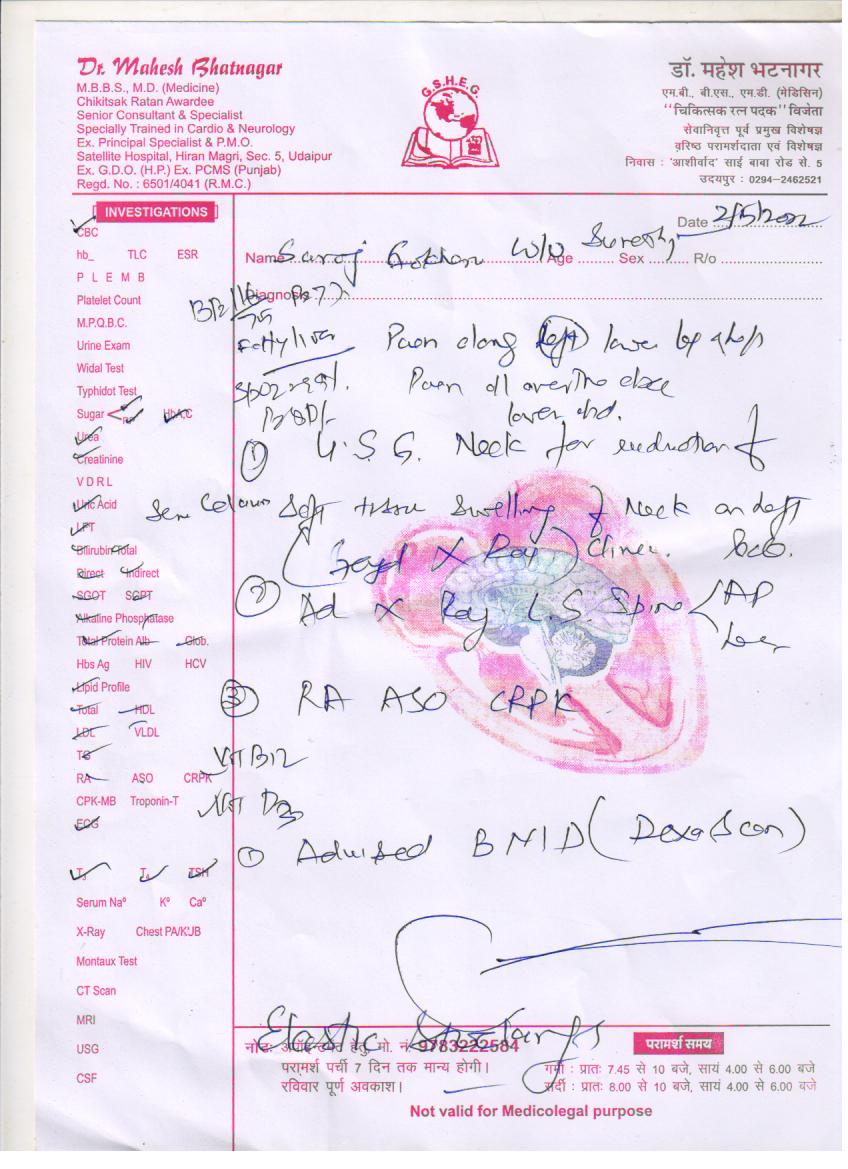 Dr. Mahesh Bhatnagar
M.B.B.S., M.D. (Medicine)
Chikitsak Ratan Awardee
Senior Consultant & Specialist
Specially Trained in Cardio & Neurology
Ex. Principal Specialist & P.M.O.
Satellite Hospital, Hiran Magri, Sec. 5, Udaipur
Ex. G.D.O. (H.P.) Ex. PCMS (Punjab)
Regd. No. : 6501/4041 (R.M.C.)
G.S.H.E.G.
डॉ. महेश भटनागर
एम.बी., बी.एस., एम.डी. (मेडिसिन)
"चिकित्सक रत्न पदक" विजेता
सेवानिवृत्त पूर्व प्रमुख विशेषज्ञ
वरिष्ठ परामर्शदाता एवं विशेषज्ञ
निवास : 'आशीर्वाद' साई बाबा रोड से. 5
उदयपुर : 0294-2462521
INVESTIGATIONS
CBC
hb_ TLC ESR
P L E M B
Platelet Count
M.P.Q.B.C.
Urine Exam
Widal Test
Typhidot Test
Sugar HbA,C
Urea
Creatinine
V D R L
Uric Acid
LFT
Bilirubin Total
Direct Indirect
SGOT SGPT
Alkaline Phosphatase
Total Protein Alb Glob.
Hbs Ag HIV HCV
Lipid Profile
Total HDL
LDL VLDL
TG
RA ASO CRPK
CPK-MB Troponin-T
ECG
T3 T4 TSH
Serum Naº Kº Caº
X-Ray Chest PA/KUB
Montaux Test
CT Scan
MRI
USG
CSF
Date
Name Saroj W/O Suresh Age Sex R/o
Diagnosis
Fatty liver Pain along left lower
Pain all over the
lower abd.
① U.S.G. Neck for
Soft tissue Swelling of Neck on left
X Ray
② Ad X Ray L.S. Spine AP
③ RA ASO CRPK
Vit B12
Vit D3
① Advised BMD (Dexa Scan)
Elastic
नोट: अपॉइन्टमेंट हेतु मो. नं. 9783222584
परामर्श पर्ची 7 दिन तक मान्य होगी।
रविवार पूर्ण अवकाश।
परामर्श समय
गर्मी : प्रातः 7.45 से 10 बजे, सायं 4.00 से 6.00 बजे
सर्दी : प्रातः 8.00 से 10 बजे, सायं 4.00 से 6.00 बजे
Not valid for Medicolegal purpose